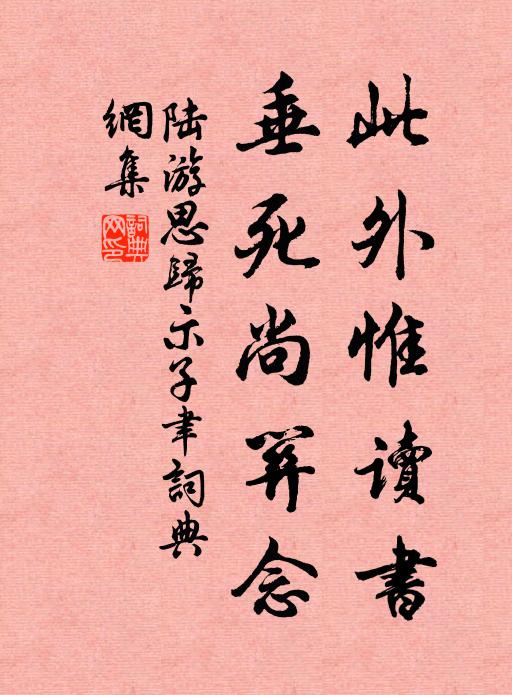 此外惟讀書
垂死尚關念
陸游思歸示子聿詞典
網集
詞典
网印